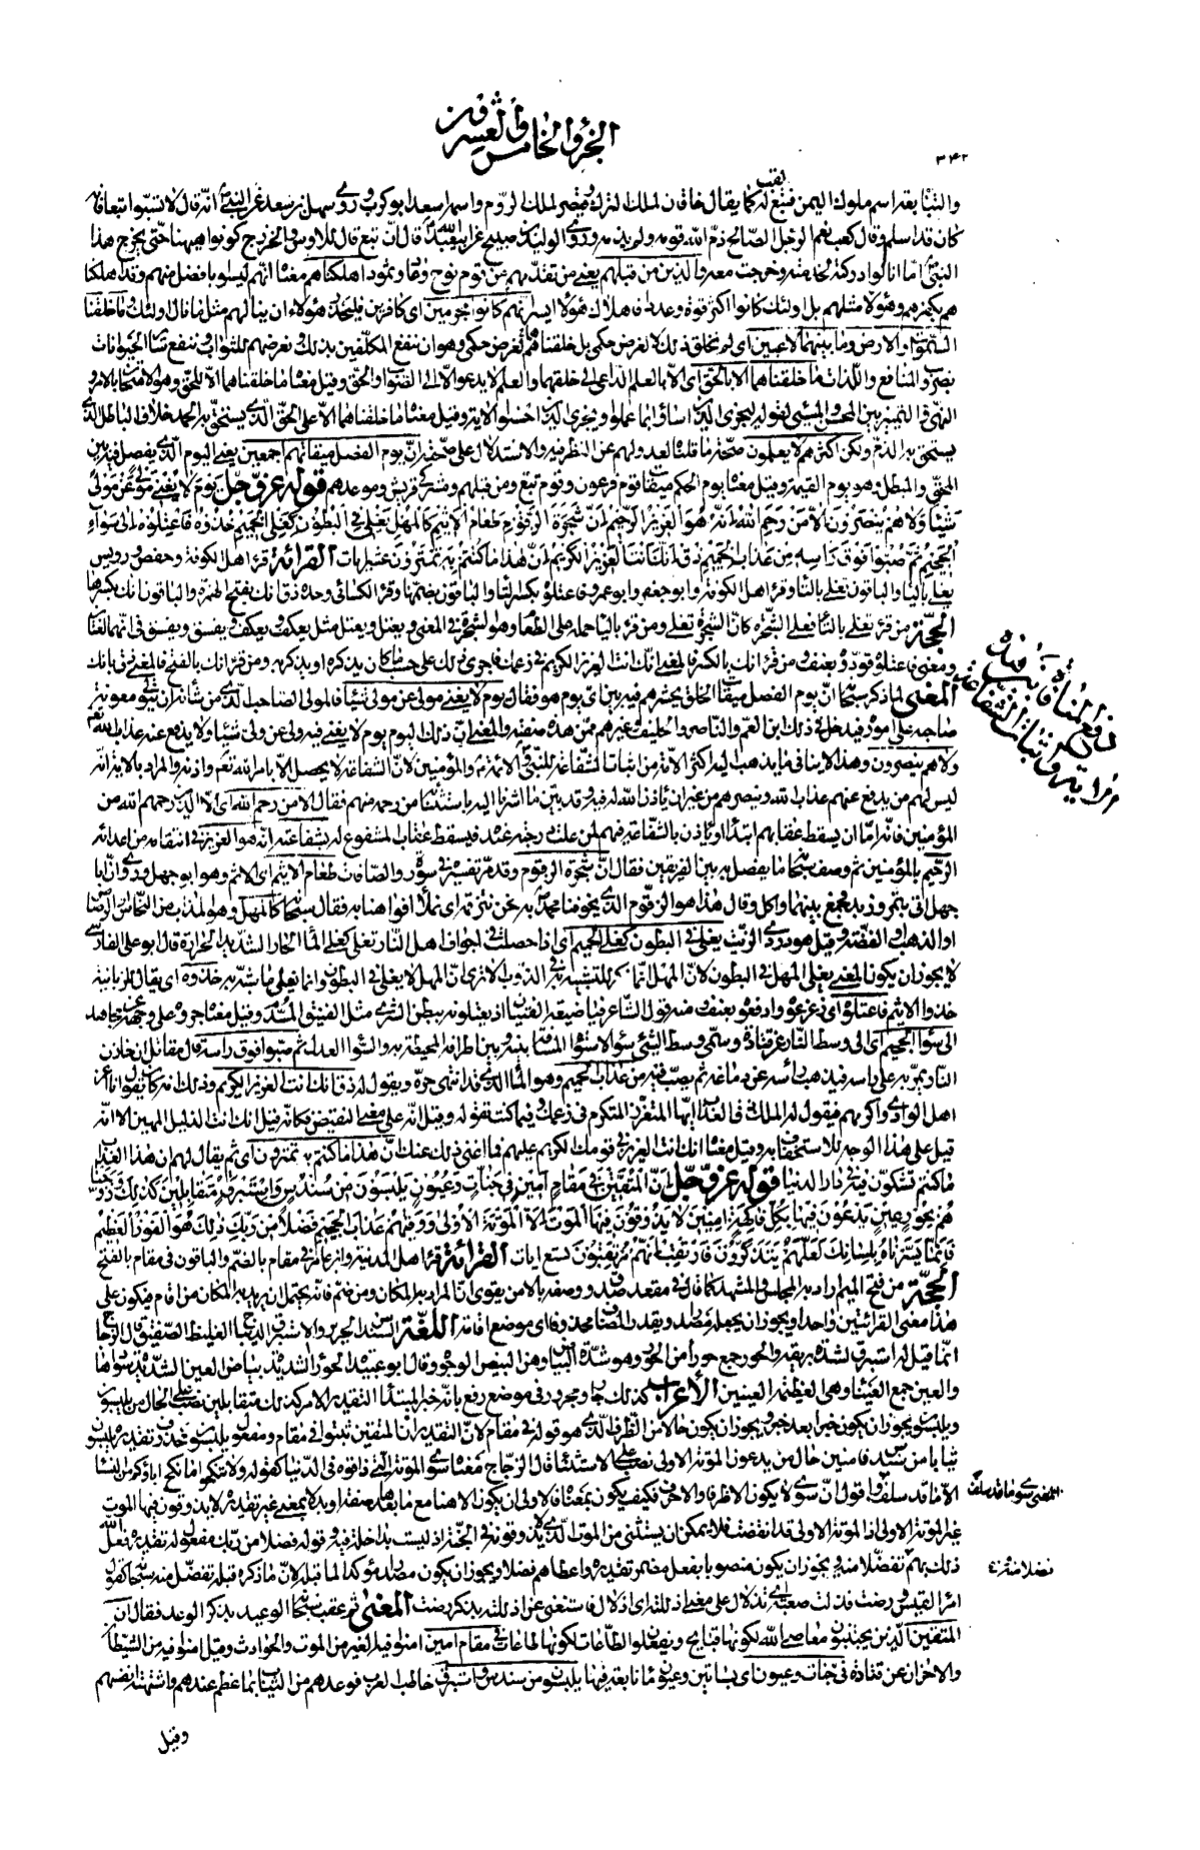 الجزؤ الخامس والعشرون
٣٤٢
لقب
والتبابعة اسم ملوك اليمن فتبع لقب له كما يقال خاقان لملك الترك وقيصر لملك الروم واسمه اسعد ابو كرب وروى سهل بن سعد عن النبي انه قال لا تسبوا تبعا فانه
كان قد اسلم وقال كعب نعم الرجل الصالح ذم الله قومه ولم يذمه وروى الوليد بن صبيح عن ابي عبد الله قال ان تبع قال للاوس والخزرج كونوا هيهنا حتى يخرج هذا
النبي اما انا لو ادركته لخدمته وخرجت معه والذين من قبلهم يعني من تقدمهم من قوم نوح وعاد وثمود اهلكناهم معناه انهم ليسوا بافضل منهم وقد اهلكنا
هم بكفرهم وهؤلاء مثلهم بل اولئك كانوا اكثر قوة وعددا فاهلاك هؤلاء ايسر انهم كانوا مجرمين اي كافرين فليحذر هؤلاء ان ينالهم مثل ما نال اولئك وما خلقنا
السموات والارض وما بينهما لاعبين اي لم نخلق ذلك لا لغرض حكمي بل خلقناهما لغرض حكمي وهو ان ننفع المكلفين بذلك ونعرضهم للثواب وننفع سائر الحيوانات
بضروب المنافع واللذات ما خلقناهما الا بالحق اي الا بالعلم الداعي الى خلقهما والعلم لا يدعو الا الى الصواب والحق وقيل معناه ما خلقناهما الا للحق وهو الامتحان بالامر و
النهي والتمييز بين المحسن والمسيء لقوله ليجزي الذين اساؤا بما عملوا ويجزي الذين احسنوا الاية وقيل معناه ما خلقناهما الا على الحق الذي يستحق به الحمد خلاف الباطل الذي
يستحق به الذم ولكن اكثرهم لا يعلمون صحة ما قلناه لعدولهم عن النظر فيه والاستدلال على صحته ان يوم الفصل ميقاتهم اجمعين يعني اليوم الذي يفصل فيه بين
المحق والمبطل وهو يوم القيمة وقيل معناه يوم الحكم ميقات قوم فرعون وقوم تبع ومن قبلهم ومشركي قريش وموعدهم قوله عز وجل يوم لا يغني مولى عن مولى
شيئا ولا هم ينصرون الا من رحم الله انه هو العزيز الرحيم ان شجرة الزقوم طعام الاثيم كالمهل يغلي في البطون كغلي الحميم خذوه فاعتلوه الى سواء
الجحيم ثم صبوا فوق راسه من عذاب الحميم ذق انك انت العزيز الكريم ان هذا ما كنتم به تمترون عشر ايات القرائة قرء اهل الكوفة وحفص ورويس
يغلي بالياء والباقون تغلي بالتاء وقرء اهل الكوفة وابو جعفر وابو عمرو فاعتلوه بكسر التاء والباقون بضمها وقرء الكسائي وحده ذق انك بفتح الهمزة والباقون انك بكسرها
الحجة من قرء تغلي بالتاء فعلى الشجرة كان الشجرة تغلي ومن قرء بالياء حمله على الطعام وهو الشجرة في المعنى ويعتل ويعتل مثل يعكف ويعكف ويفسق ويفسق في انهما لغتان
ومعنى فاعتلوه قودوه بعنف ومن قرء انك بالكسر فالمعنى انك انت العزيز الكريم في زعمك فاجرى ذلك على حسب ما كان يذكره او يذكر به ومن قرء انك بالفتح فالمعنى ذق بانك
المعنى لما ذكر سبحانه ان يوم الفصل ميقات الخلق يحشرهم فيه بين اي يوم هو فقال يوم لا يغني مولى عن مولى شيئا فالمولى الصاحب الذي من شأنه ان يتولى معونة
صاحبه على اموره فيدخل في ذلك ابن العم والناصر والحليف وغيرهم ممن هذه صفته والمعنى ان ذلك اليوم يوم لا يغني فيه ولي عن ولي شيئا ولا يدفع عنه عذاب الله تعالى
ولا هم ينصرون وهذا لا ينافي ما يذهب اليه اكثر الامة من اثبات الشفاعة للنبي والائمة والمؤمنين لان الشفاعة لا يحصل الا بامر الله تعالى واذنه والمراد بالاية انه
ليس لهم من يدفع عنهم عذاب الله وينصرهم من غير ان ياذن الله له فيه وقد بين ما اشرنا اليه باستثنائه من رحمه منهم فقال الا من رحم الله اي الا الذين رحمهم الله من
المؤمنين فانه اما ان يسقط عقابهم ابتداء او ياذن بالشفاعة فيهم لمن علت درجته عنده فيسقط عقاب المشفوع له بشفاعته انه هو العزيز في انتقامه من اعدائه
الرحيم بالمؤمنين ثم وصف سبحانه ما يفصل به بين الفريقين فقال ان شجرة الزقوم وقد مر تفسيره في سورة والصافات طعام الاثيم اي الاثم وهو ابو جهل وروي ان ابا
جهل اتى بتمر وزبد فجمع بينهما واكل وقال هذا هو الزقوم الذي يخوفنا محمد به نحن نتزقمه اي نملأ افواهنا به فقال سبحانه كالمهل وهو المذاب من النحاس او الرصاص
او الذهب او الفضة وقيل هو دردي الزيت يغلي في البطون كغلي الحميم اي اذا حصلت في اجواف اهل النار تغلي كغلي الماء الحار الشديد الحرارة قال ابو علي الفارسي
لا يجوز ان يكون المعنى يغلي المهل في البطون لان المهل انما ذكر للتشبيه به في الذوب الا ترى ان المهل لا يغلي في البطون وانما يغلي ما شبه به خذوه اي يقال للزبانية
خذوا الاثيم فاعتلوه اي زعزعوه وادفعوه بعنف ومنه قول الشاعر فيا ضيعة الفتيان اذ يعتلونه ببطن الثرى مثل الفنيق المسدم وقيل معناه جروه على وجهه عن مجاهد
الى سواء الجحيم اي الى وسط النار عن قتادة وسمي وسط الشيء سواء لاستواء المسافة بينه وبين اطرافه المحيطة به والسواء العدل ثم صبوا فوق راسه قال مقاتل ان خازن
النار يمر به على راسه فيذهب راسه عن دماغه ثم يصب فيه من عذاب الحميم وهو الماء الذي قد انتهى حره ويقول له ذق انك انت العزيز الكريم وذلك انه كان يقول انا اعز
اهل الوادي واكرمهم فيقول له الملك ذق العذاب ايها المتعزز المتكرم في زعمك وفيما كنت تقوله وقيل انه على معنى النقيض فكانه قيل انك انت الذليل المهين الا انه
قيل على هذا الوجه للاستخفاف به وقيل معناه انك انت العزيز في قومك الكريم عليهم فما اغنى ذلك عنك ان هذا ما كنتم به تمترون اي ثم يقال لهم ان هذا العذاب
ما كنتم تشكون فيه في دار الدنيا قوله عز وجل ان المتقين في مقام امين في جنات وعيون يلبسون من سندس واستبرق متقابلين كذلك وزوجنا
هم بحور عين يدعون فيها بكل فاكهة امنين لا يذوقون فيها الموت الا الموتة الاولى ووقيهم عذاب الجحيم فضلا من ربك ذلك هو الفوز العظيم
فانما يسرناه بلسانك لعلهم يتذكرون فارتقب انهم مرتقبون تسع ايات القرائة قرء اهل المدينة وابن عامر في مقام بالضم والباقون في مقام بالفتح
الحجة من فتح الميم اراد به المجلس والمشهد كما قال في مقعد صدق ووصفه بالامن يقوى ان المراد به المكان ومن ضم فانه يحتمل ان يريد به المكان من اقام فيكون على
هذا معنى القرائتين واحدا ويجوز ان يجعله مصدرا ويقدر المضاف محذوفا اي موضع اقامة اللغة السندس الحرير والاستبرق الديباج الغليظ الصفيق قال الزجاج
انما قيل له استبرق لشدة بريقه والحور جمع حوراء من الحور وهو شدة البياض وهن البيض الوجوه وقال ابو عبيدة الحوراء الشديدة بياض العين الشديدة سوادها
والعين جمع العيناء وهي العظيمة العينين الاعراب كذلك جار ومجرور في موضع رفع بانه خبر المبتدأ التقدير الامر كذلك متقابلين نصب على الحال من يلبسون
ويلبسون يجوز ان يكون خبرا بعد خبر ويجوز ان يكون حالا من الظرف الذي هو قوله في مقام لان التقدير ان المتقين ثبتوا في مقام ومفعول يلبسون محذوف وتقديره يلبسون
ثيابا من سندس فامنين حال من يدعون الموتة الاولى نصب على الاستثناء قال الزجاج معناه سوى الموتة التي ذاقوه في الدنيا كقوله ولا تنكحوا ما نكح اباؤكم من النساء
الا ما قد سلف واقول ان سوى لا يكون الا ظرفا والا حرف فكيف يكون بمعناه فالاولى ان يكون الا هنا مع ما بعدها صفة او بدلا بمعنى غير تقديره لا يذوقون فيها الموت
غير الموتة الاولى اذ الموتة الاولى قد انقضت فلا يمكن ان يستثنى من الموت الذي لا يذوقونه في الجنة اذ ليست بداخلة فيه وقوله فضلا من ربك مفعول له تقديره فعل الله
ذلك بهم تفضلا منه ويجوز ان يكون منصوبا بفعل مضمر تقديره واعطاهم فضلا ويجوز ان يكون مصدرا مؤكدا لما قبله لان ما ذكره قبله تفضل منه سبحانه كقول
امرؤ القيس ورضت فذلت صعبة اي تذلال على معنى اذللته اي اذلال فاستغنى عن اذللته بذكر رضت المعنى ثم عقب سبحانه الوعيد بذكر الوعد فقال ان
المتقين الذين يجتنبون معاصي الله لكونها قبايح ويفعلون الطاعات لكونها طاعات في مقام امين امنوا فيه الغير من الموت والحوادث وقيل امنوا فيه من الشيطان
والاحزان عن قتادة في جنات وعيون اي بساتين وعيون ماء نابعة فيها يلبسون من سندس واستبرق خاطب العرب فوعدهم من الثياب بما عظم عندهم واشتهته انفسهم
وقيل
دفع المنافاة بين هذه
الاية واثبات الشفاعة
المعنى سوى ما قد سلف
فضلا منه